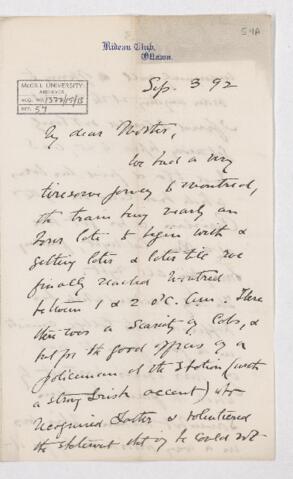 54A
Rideau Club,
Ottawa.
McGILL UNIVERSITY
ARCHIVES
ACQ. NO. 1372/15/18
REF. 57
Sep. 3 92
My dear
We had a very
tiresome journey to Montreal,
the train being nearly an
hour late to begin with &
getting later & later till we
finally reached Montreal
between 1 & 2 o'c. a.m. There
there was a scarcity of Cabs, &
but for the good offices of a
policeman at the Station (with
a strong Irish accent) who
recognized & volunteered
the statement that if he could not